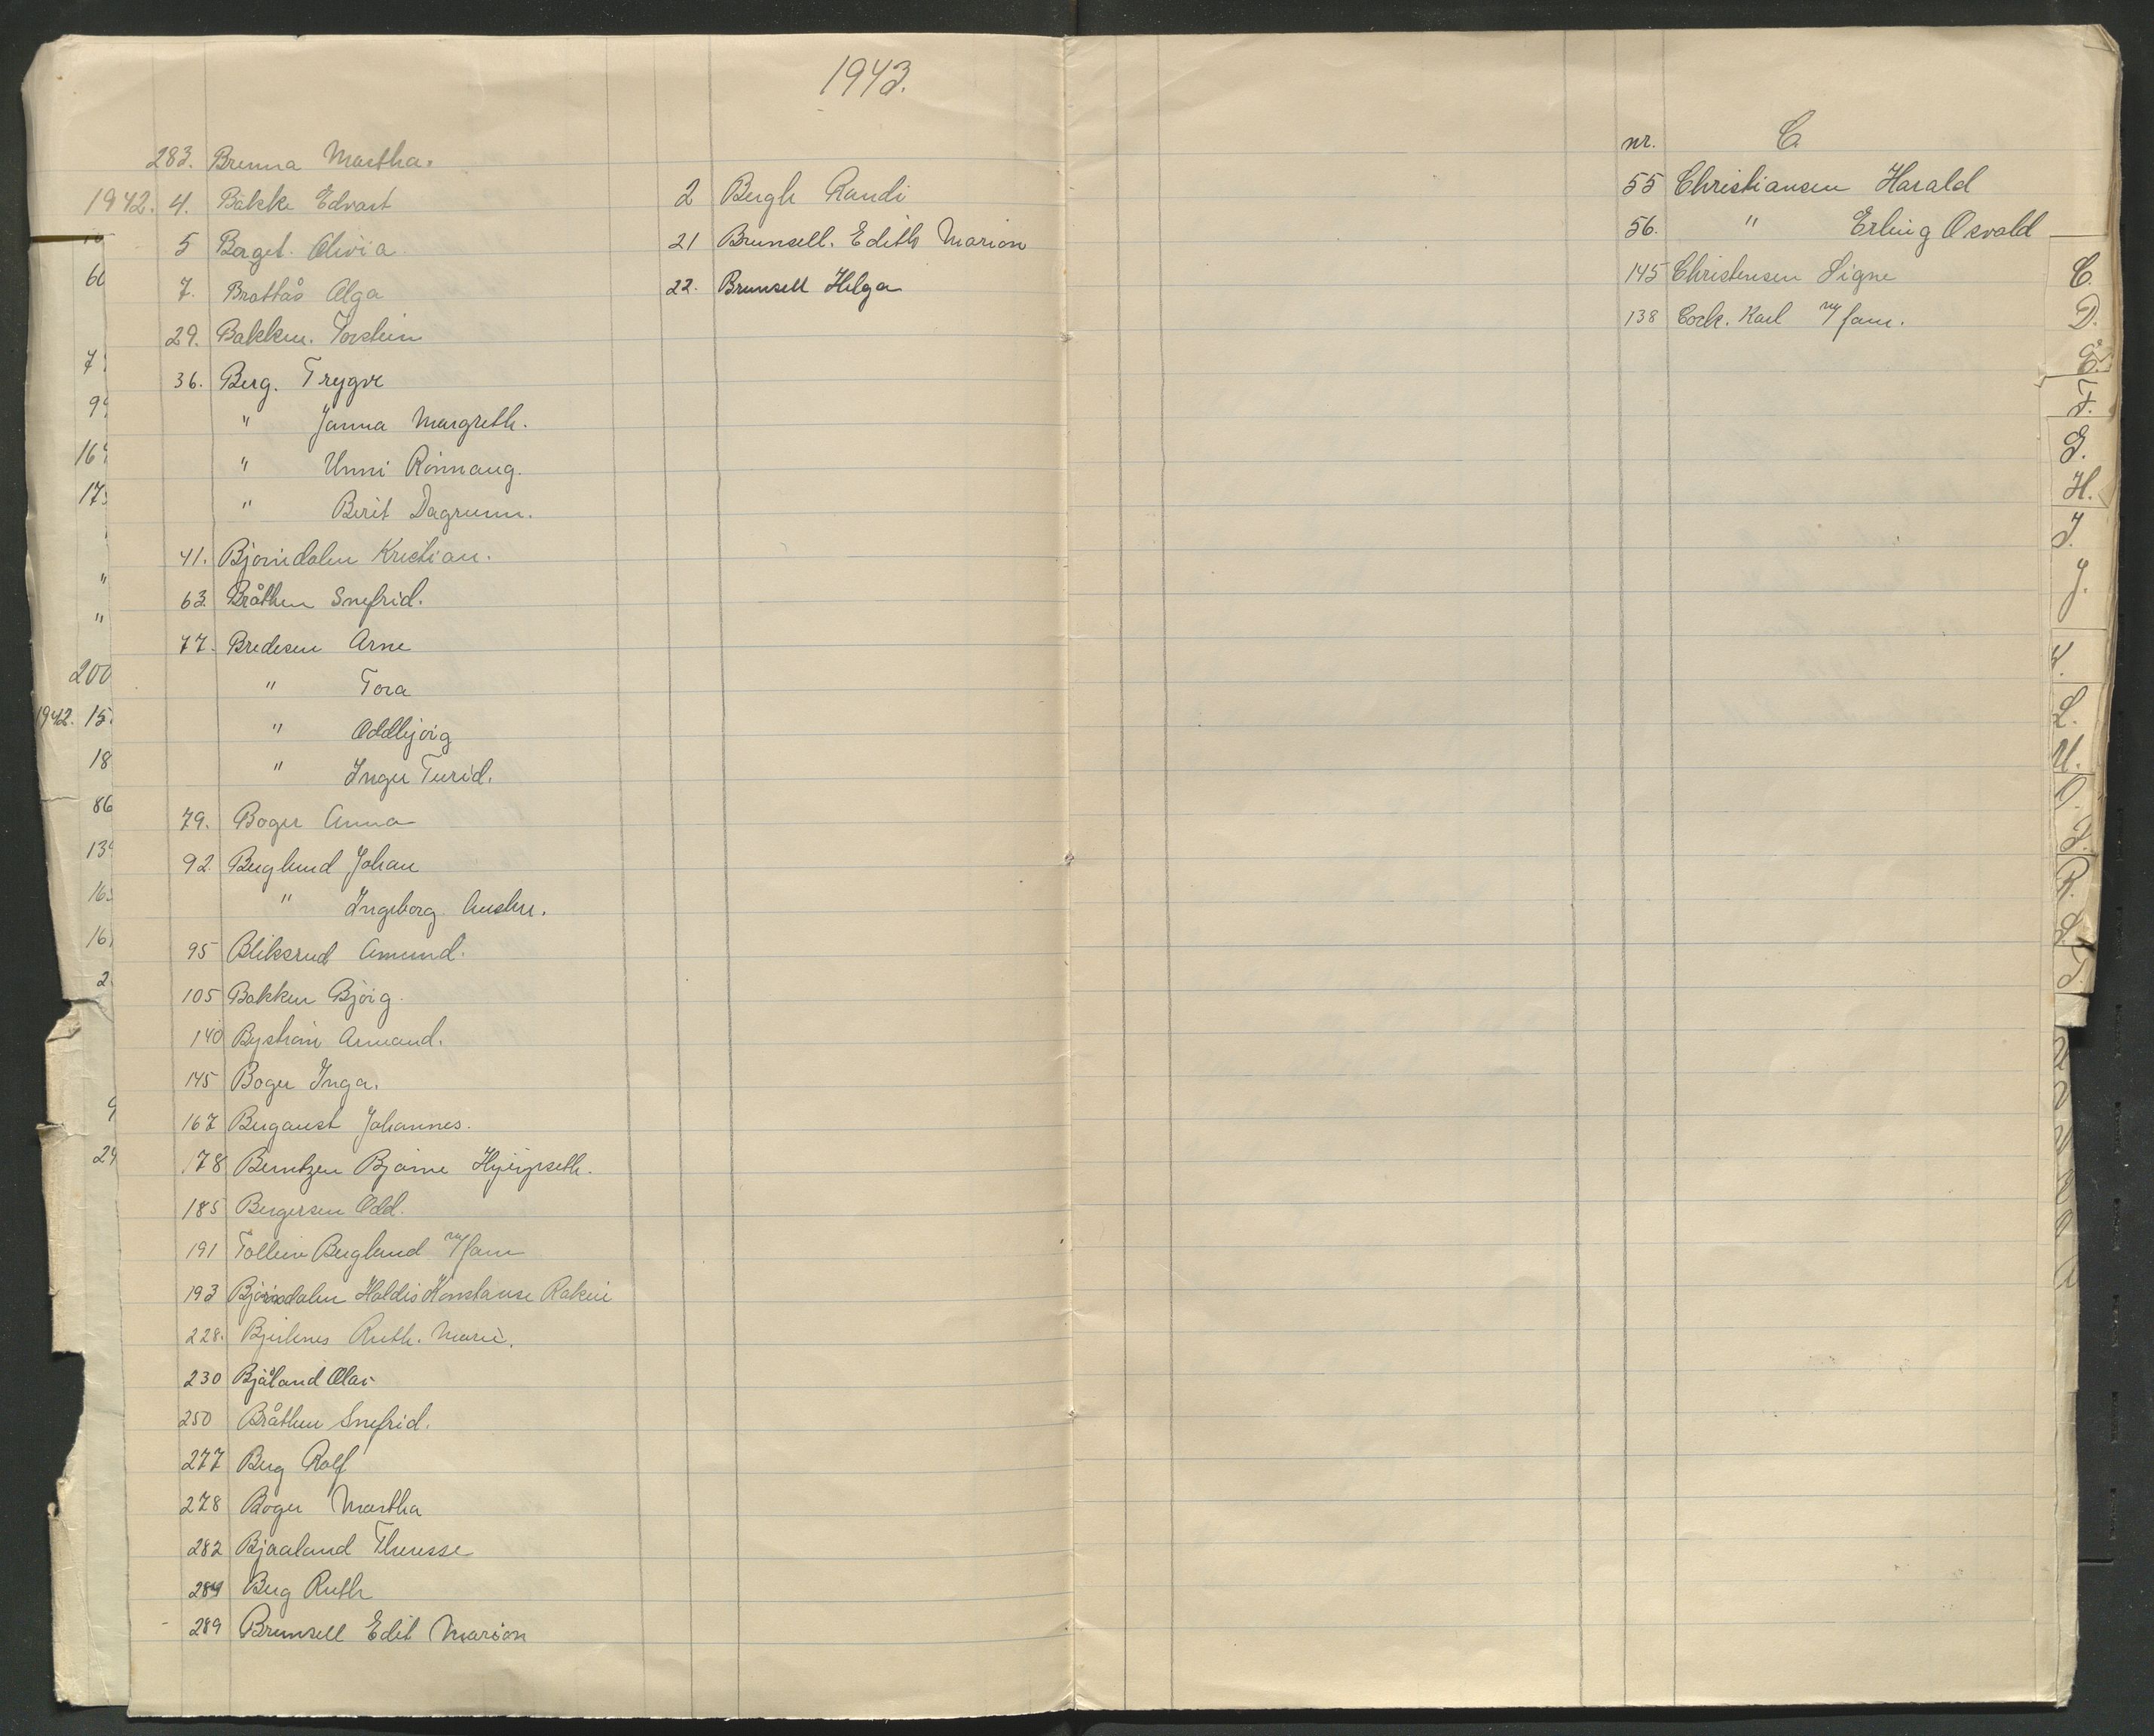 283. Brenna Martha.
1942. 4. Bakke Edvart
5 Berget. Olivia
7. Brattås Olga
29. Bakken. Torstein
36. Berg. Trygve
" Janna Margreth.
" Unni Rönnaug.
" Berit Dagrunn.
41. Bjørndalen Kristian.
63. Bråthen Snefrid.
77. Bredesen Arne
" Tora
" Oddbjörg
" Inger Turid.
79. Boger Anna
92. Berglund Johan
" Ingeborg
95 Bliksrud Amund.
105 Bakken Bjørg.
140 Byström Armand.
145 Boger Inga.
167 Bergaust Johannes.
178 Berntzen Bjarne
185 Bergersen Odd.
191 Tollein Berglund m/fam
193 Bjørndalen Haldis Konstanse
228. Ruth. Marie.
230 Bjåland Olav
250 Bråthen Snefrid.
277 Berg Rolf
278 Boger Martha
282 Bjaaland Theresse
284 Berg Ruth
289 Brunsell Edit Marion
1943.
2 Bergh Randi
21 Brunsell. Edith Marion
22. Brunsell Helga
nr. C.
55 Christiansen Harald
56. " Erling Osvald
145 Christensen Signe
138 Cock. Karl m/fam.
60
200
1942. 15.
18
86
C.
D.
E.
F.
G.
H.
I.
J.
K.
L.
M.
O.
P.
R.
S.
T.